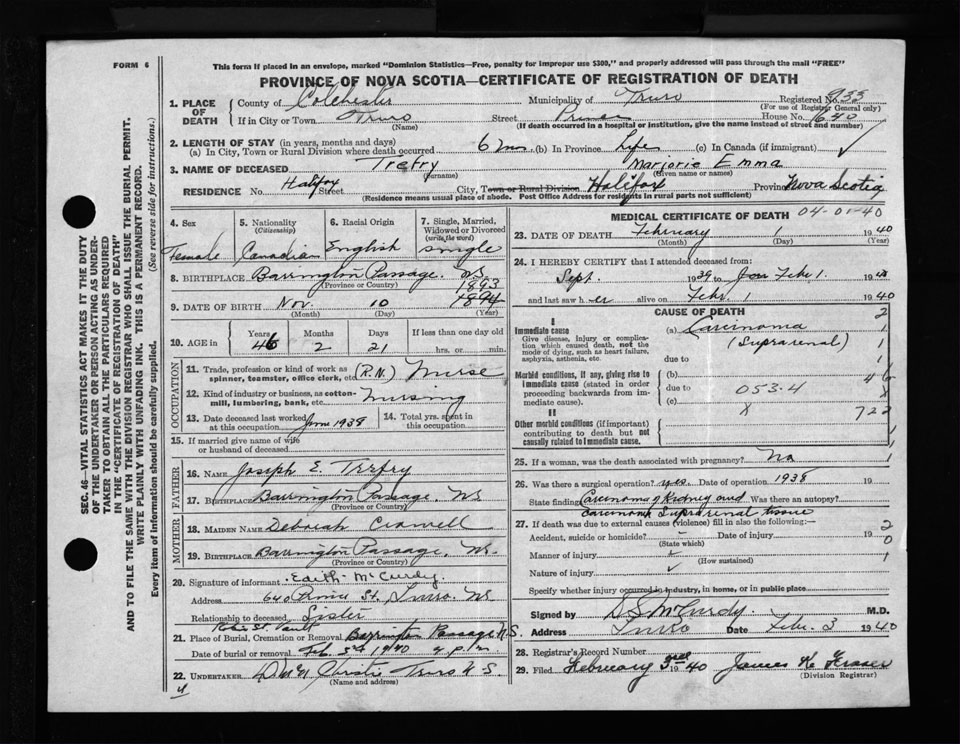 FORM 6
This form if placed in an envelope, marked "Dominion Statistics—Free, penalty for improper use $300," and properly addressed will pass through the mail "FREE"
PROVINCE OF NOVA SCOTIA—CERTIFICATE OF REGISTRATION OF DEATH
SEC. 46—VITAL STATISTICS ACT MAKES IT THE DUTY
OF THE UNDERTAKER OR PERSON ACTING AS UNDER-
TAKER TO OBTAIN ALL THE PARTICULARS REQUIRED
IN THE "CERTIFICATE OF REGISTRATION OF DEATH"
AND TO FILE THE SAME WITH THE DIVISION REGISTRAR WHO SHALL ISSUE THE BURIAL PERMIT.
WRITE PLAINLY WITH UNFADING INK. THIS IS A PERMANENT RECORD.
Every item of information should be carefully supplied. (See reverse side for instructions.)
1. PLACE OF DEATH County of Colchester Municipality of Truro Registered No. 933
(For use of Registrar General only)
If in City or Town Truro Street Prince House No. 640
(Name) (If death occurred in a hospital or institution, give the name instead of street and number)
2. LENGTH OF STAY (in years, months and days)
(a) In City, Town or Rural Division where death occurred 6 ms (b) In Province Life (c) In Canada (if immigrant)
3. NAME OF DECEASED Trefry Marjorie Emma
(Surname) (Given name or names)
RESIDENCE No. Halifax Street City, Town or Rural Division Halifax Province Nova Scotia
(Residence means usual place of abode. Post Office Address for residents in rural parts not sufficient)
4. Sex 5. Nationality 6. Racial Origin 7. Single, Married,
(Citizenship) Widowed or Divorced
(write the word)
Female Canadian English single
8. BIRTHPLACE Barrington Passage. NS
(Province or Country) 1893
9. DATE OF BIRTH Nov. 10 1894
(Month) (Day) (Year)
10. AGE in Years Months Days If less than one day old
46 2 21 hrs. or min.
OCCUPATION
11. Trade, profession or kind of work as
spinner, teamster, office clerk, etc (R.N.) Nurse
12. Kind of industry or business, as cotton-
mill, lumbering, bank, etc. nursing
13. Date deceased last worked 14. Total yrs. spent in
at this occupation June 1938 this occupation
15. If married give name of wife
or husband of deceased
FATHER
16. NAME Joseph E. Trefry
17. BIRTHPLACE Barrington Passage, NS
(Province or Country)
MOTHER
18. MAIDEN NAME Deborah Crowell
19. BIRTHPLACE Barrington Passage. NS.
(Province or Country)
20. Signature of informant Edith McCurdy
Address 640 Prince St. Truro. NS
Relationship to deceased Sister
21. Place of Burial, Cremation or Removal Barrington Passage N.S.
Date of burial or removal Feb. 3rd 1940
22. UNDERTAKER Christie Truro N S.
(Name and address)
MEDICAL CERTIFICATE OF DEATH 04-01-40
23. DATE OF DEATH February 1 1940
(Month) (Day) (Year)
24. I HEREBY CERTIFY that I attended deceased from:
Sept. 1939 to Febr. 1 1940
and last saw her alive on Febr. 1 1940
CAUSE OF DEATH
I
Immediate cause (a) Carcinoma
Give disease, injury or complica-
tion which caused death, not the (Suprarenal)
mode of dying, such as heart failure,
asphyxia, asthenia, etc. due to
Morbid conditions, if any, giving rise to (b)
immediate cause (stated in order due to 053.4
proceeding backwards from im-
mediate cause). (c)
II
Other morbid conditions (if important)
contributing to death but not
causally related to immediate cause. 722
25. If a woman, was the death associated with pregnancy? No
26. Was there a surgical operation? yes. Date of operation 1938 19
State finding Carcinoma of kidney and Was there an autopsy?
Carcinoma Suprarenal tissue
27. If death was due to external causes (violence) fill in also the following:—
Accident, suicide or homicide? Date of injury 19
(State which)
Manner of injury
(How sustained)
Nature of injury
Specify whether injury occurred in industry, in home, or in public place
Signed by D S McCurdy M.D.
Address Truro Date Febr. 3 1940
28. Registrar's Record Number
29. Filed February 3rd 1940 James K Fraser
(Division Registrar)